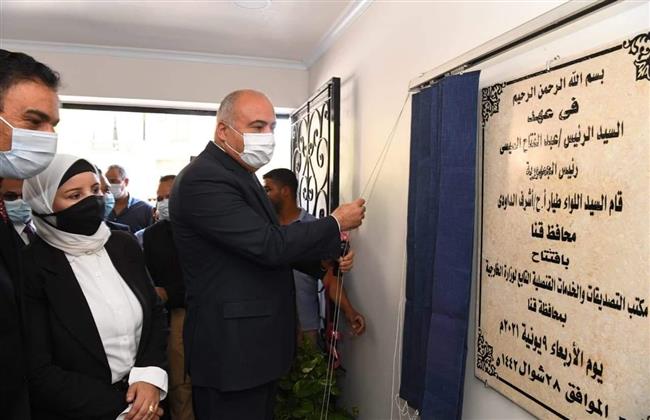 بسم الله الرحمن الرحيم
في عهد
السيد الرئيس/عبد الفتاح السيسى
رئيس الجمهورية
قام السيد اللواء طيار أ.ح/أشرف الداودى
محافظ قنا
بافتتاح
مكتب التصديقات والخدمات القنصلية التابع لوزارة الخارجية
بمحافظة قنا
يوم الأربعاء ٩ يونية ٢٠٢١م
الموافق ٢٨ شوال ١٤٤٢ه